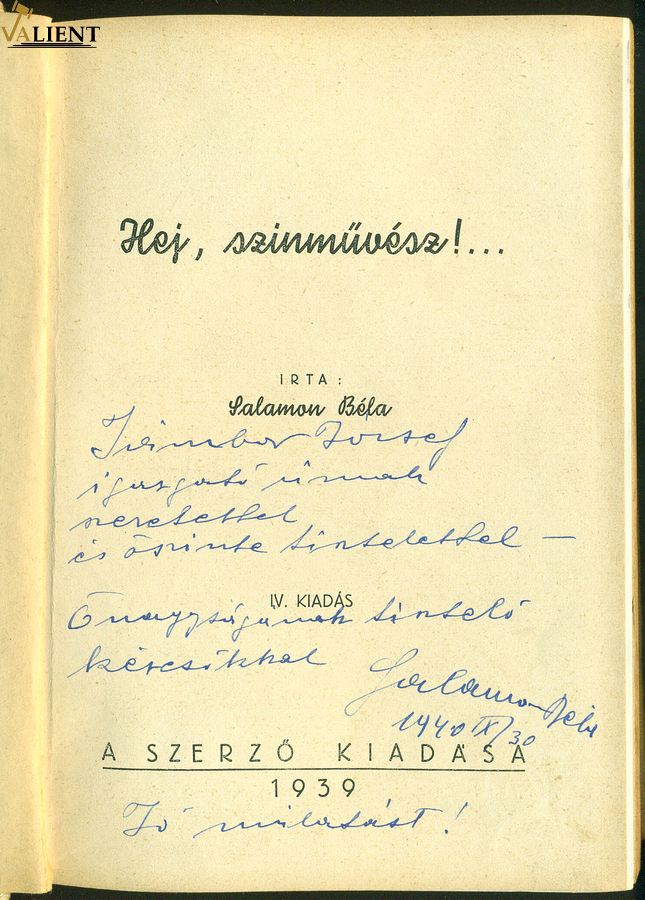 VALIENT
Hej, szinművész!...
IRTA:
Salamon Béla
József
igazgató úrnak
szeretettel
és őszinte tisztelettel —
IV. KIADÁS
Őnagyságának tisztelő
kézcsókkal
Salamon Béla
1940 IX/30
A SZERZŐ KIADÁSA
1939
Jó mulatást!